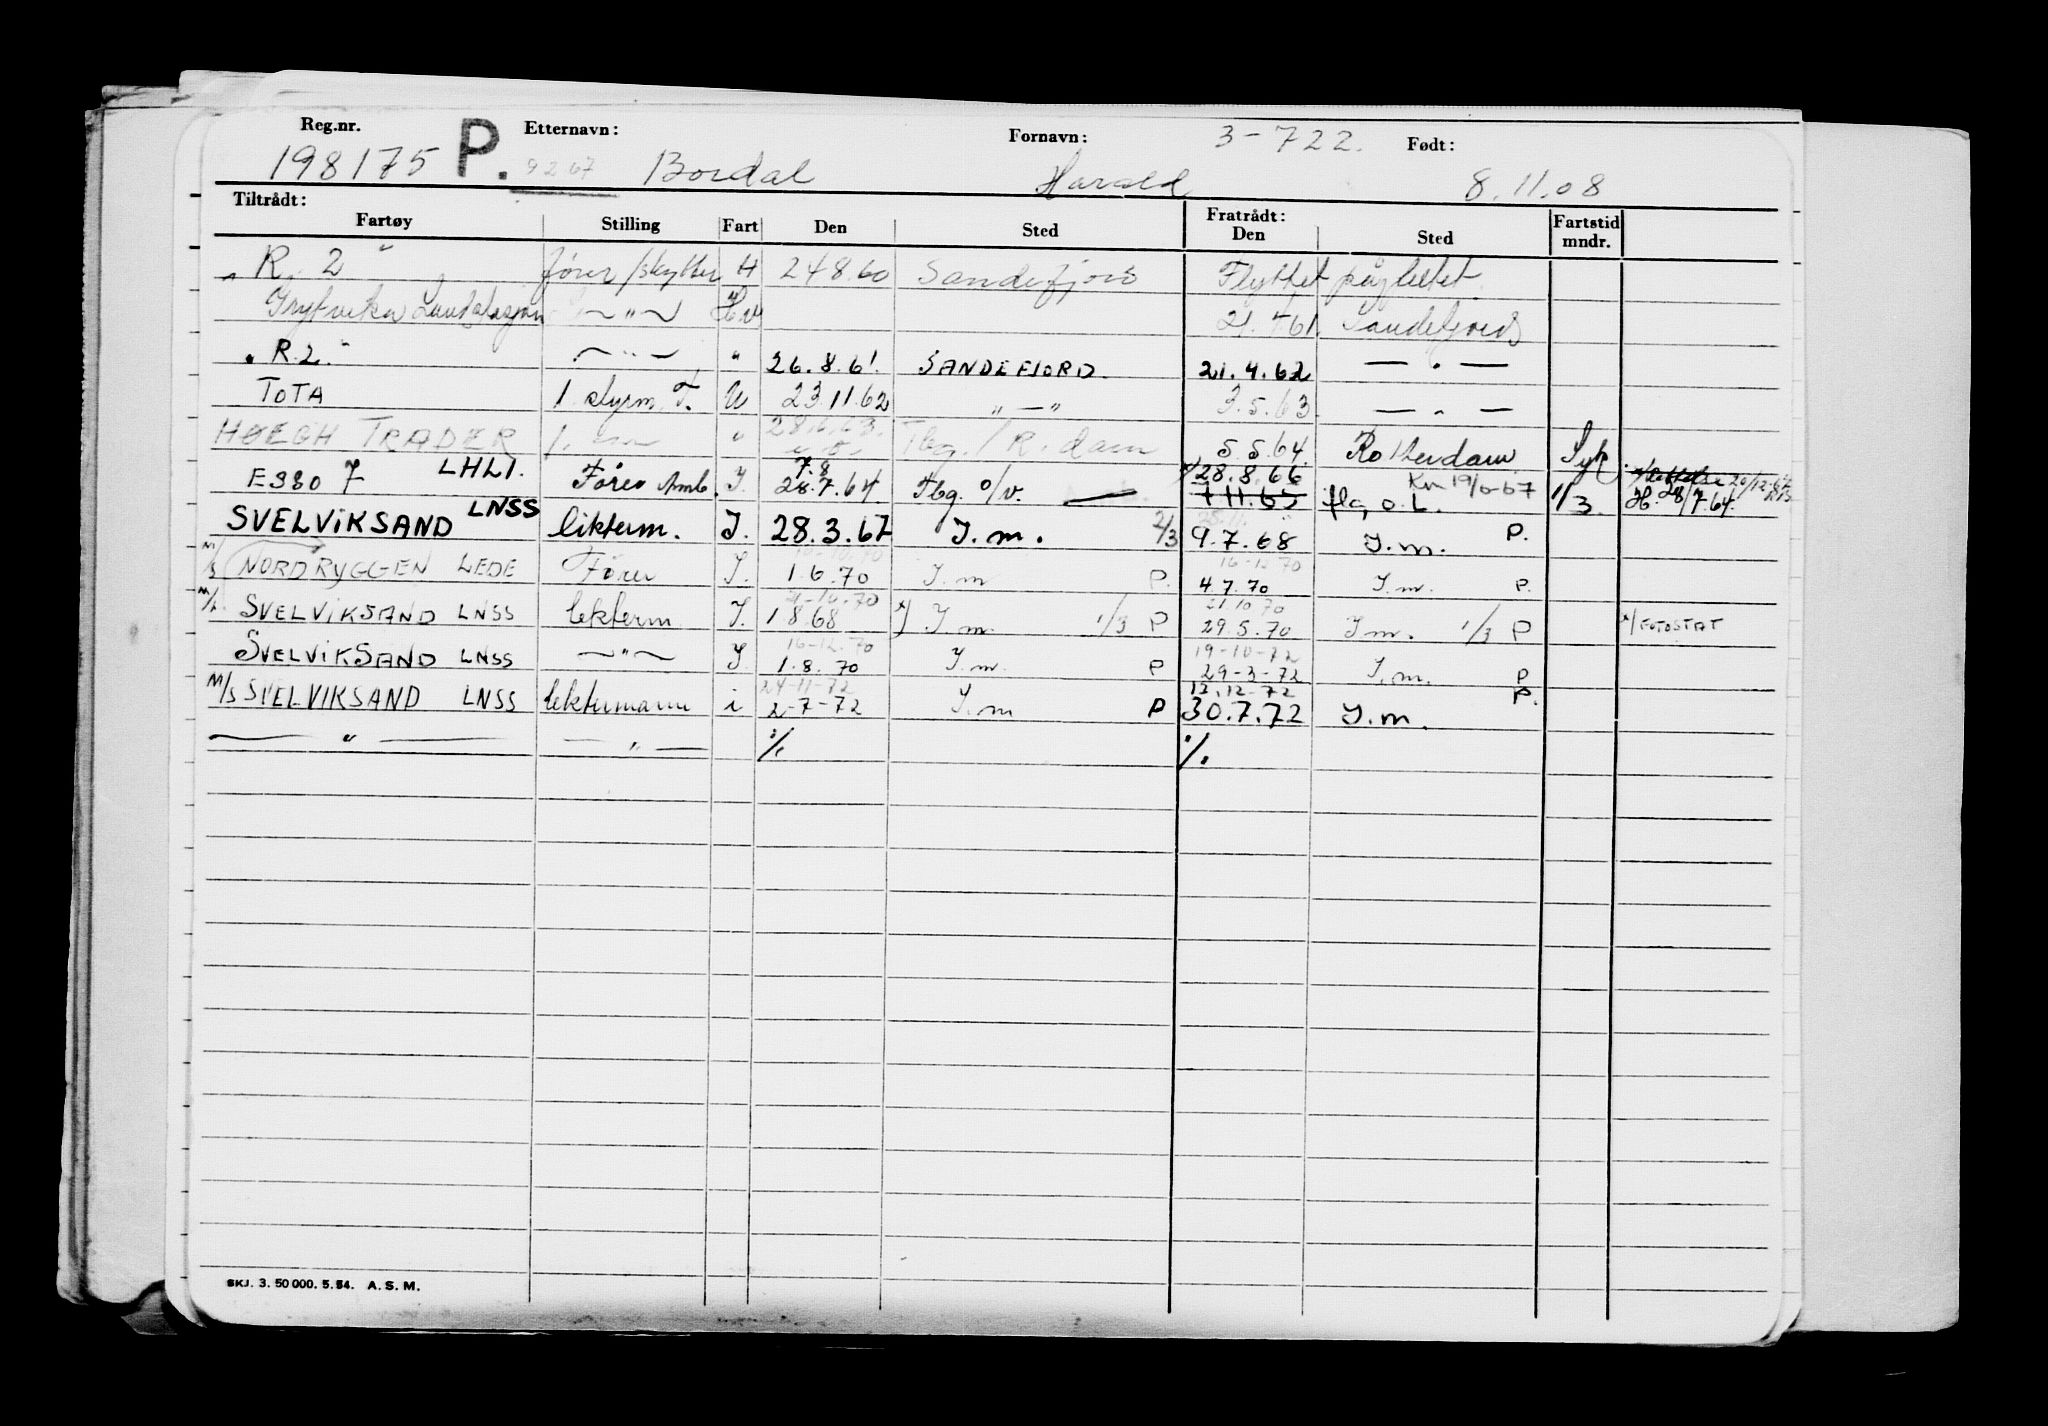 Reg.nr. Etternavn: Fornavn: 3-722. Født:
198175 P. 9267 Bordal Harald 8.11.08
Tiltrådt: Fratrådt:
Fartøy Stilling Fart Den Sted Den Sted Fartstid mndr.
" R. 2 " fører/skytter H 24 8.60 Sandefjord Flyttet på feltet.
Grytviken Landstasjon — " — Hv 21.4.61 Sandefjord
" R.2." — " — " 26.8.61 SANDEFJORD. 21.4.62 — " —
TOTA 1 styrm. T. U 23.11.62 " — " 3.5.63 — " —
HØEGH TRADER 1. — " — " 28.6.63. Tbg. / R.dam 5.5.64 Rotterdam Syk.
ESSO 7 LHLI. Fører Amb. I. 7.8 28.7.64 Tbg. o/v. — x/ 28.8.66 flg. o. L. 1/3 H. 28/7.64.
SVELVIKSAND LNSS likterm. I. 28.3.67 I.m. 2/3 9.7.68 I.m. P.
M/S NORDRYGGEN LEDE Fører I. 1.6.70 I.m P. 16-12 70 4.7.70 I.m. P.
M/L. SVELVIKSAND LNSS lekterm I. 21-10.70 1 8.68 x/ I.m. 1/3 P 21.10 70 29.5.70 I m. 1/3 P x/ FOTOSTAT
SVELVIKSAND LNSS — " — I. 16-12.70 1.8.70 I.m. P 19-10-72 29-3-72 I.m. P
M/S SVELVIKSAND LNSS lektermann i 24-11-72 2-7-72 I.m P 12.12-72 30.7.72 I.m. P.
— " — — " — %. %.
SKJ. 3. 50 000. 5. 54. A. S. M.